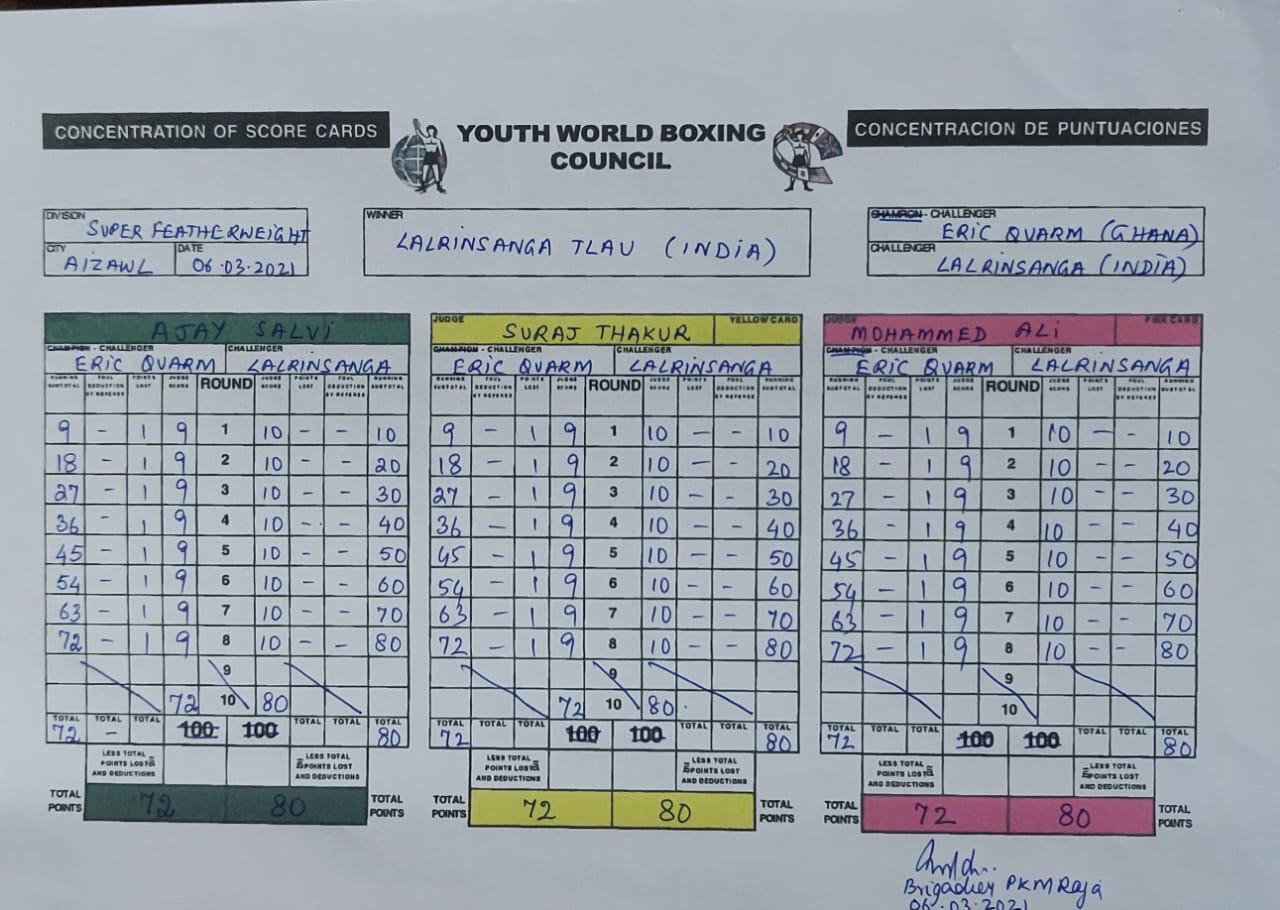 CONCENTRATION OF SCORE CARDS
YOUTH WORLD BOXING COUNCIL
CONCENTRACION DE PUNTUACIONES
DIVISION SUPER FEATHERWEIGHT
CITY AIZAWL DATE 06.03.2021
WINNER
LALRINSANGA TLAU (INDIA)
CHAMPION - CHALLENGER
ERIC QUARM (GHANA)
CHALLENGER
LALRINSANGA (INDIA)
AJAY SALVI
CHAMPION - CHALLENGER CHALLENGER
ERIC QUARM LALRINSANGA
RUNNING SUBTOTAL FOUL DEDUCTION BY REFEREE POINTS LOST JUDGE SCORE ROUND JUDGE SCORE POINTS LOST FOUL DEDUCTION BY REFEREE RUNNING SUBTOTAL
9 - 1 9 1 10 - - 10
18 - 1 9 2 10 - - 20
27 - 1 9 3 10 - - 30
36 - 1 9 4 10 - - 40
45 - 1 9 5 10 - - 50
54 - 1 9 6 10 - - 60
63 - 1 9 7 10 - - 70
72 - 1 9 8 10 - - 80
9
72 10 80
TOTAL TOTAL TOTAL 100 100 TOTAL TOTAL TOTAL
72 - 80
LESS TOTAL POINTS LOST AND DEDUCTIONS LESS TOTAL POINTS LOST AND DEDUCTIONS
TOTAL POINTS 72 80 TOTAL POINTS
JUDGE SURAJ THAKUR YELLOW CARD
CHAMPION - CHALLENGER CHALLENGER
ERIC QUARM LALRINSANGA
RUNNING SUBTOTAL FOUL DEDUCTION BY REFEREE POINTS LOST JUDGE SCORE ROUND JUDGE SCORE POINTS LOST FOUL DEDUCTION BY REFEREE RUNNING SUBTOTAL
9 - 1 9 1 10 - - 10
18 - 1 9 2 10 - - 20
27 - 1 9 3 10 - - 30
36 - 1 9 4 10 - - 40
45 - 1 9 5 10 - - 50
54 - 1 9 6 10 - - 60
63 - 1 9 7 10 - - 70
72 - 1 9 8 10 - - 80
9
72 10 80
TOTAL TOTAL TOTAL 100 100 TOTAL TOTAL TOTAL
72 80
LESS TOTAL POINTS LOST AND DEDUCTIONS LESS TOTAL POINTS LOST AND DEDUCTIONS
TOTAL POINTS 72 80 TOTAL POINTS
JUDGE MOHAMMED ALI PINK CARD
CHAMPION - CHALLENGER CHALLENGER
ERIC QUARM LALRINSANGA
RUNNING SUBTOTAL FOUL DEDUCTION BY REFEREE POINTS LOST JUDGE SCORE ROUND JUDGE SCORE POINTS LOST FOUL DEDUCTION BY REFEREE RUNNING SUBTOTAL
9 - 1 9 1 10 - - 10
18 - 1 9 2 10 - - 20
27 - 1 9 3 10 - - 30
36 - 1 9 4 10 - - 40
45 - 1 9 5 10 - - 50
54 - 1 9 6 10 - - 60
63 - 1 9 7 10 - - 70
72 - 1 9 8 10 - - 80
9
10
TOTAL TOTAL TOTAL 100 100 TOTAL TOTAL TOTAL
72 80
LESS TOTAL POINTS LOST AND DEDUCTIONS LESS TOTAL POINTS LOST AND DEDUCTIONS
TOTAL POINTS 72 80 TOTAL POINTS
Brigadier PKM Raja
06.03.2021